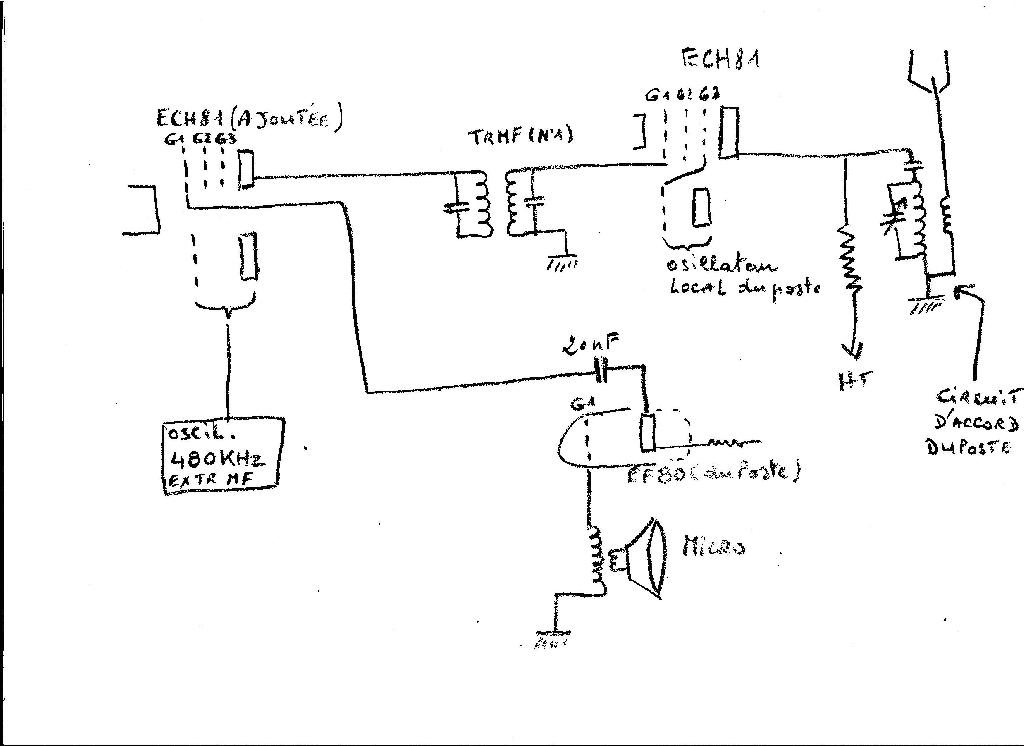 ECH81
G1 G2 G3
ECH81 (AJOUTÉE)
G1 G2 G3
TRMF (N°1)
osillateur
LOCAL du poste
20nF
HT
G1
CIRCUIT
D'ACCORD
DU POSTE
OSCIL.
480KHz
EXTR MF
EF80 (du Poste)
MICRO